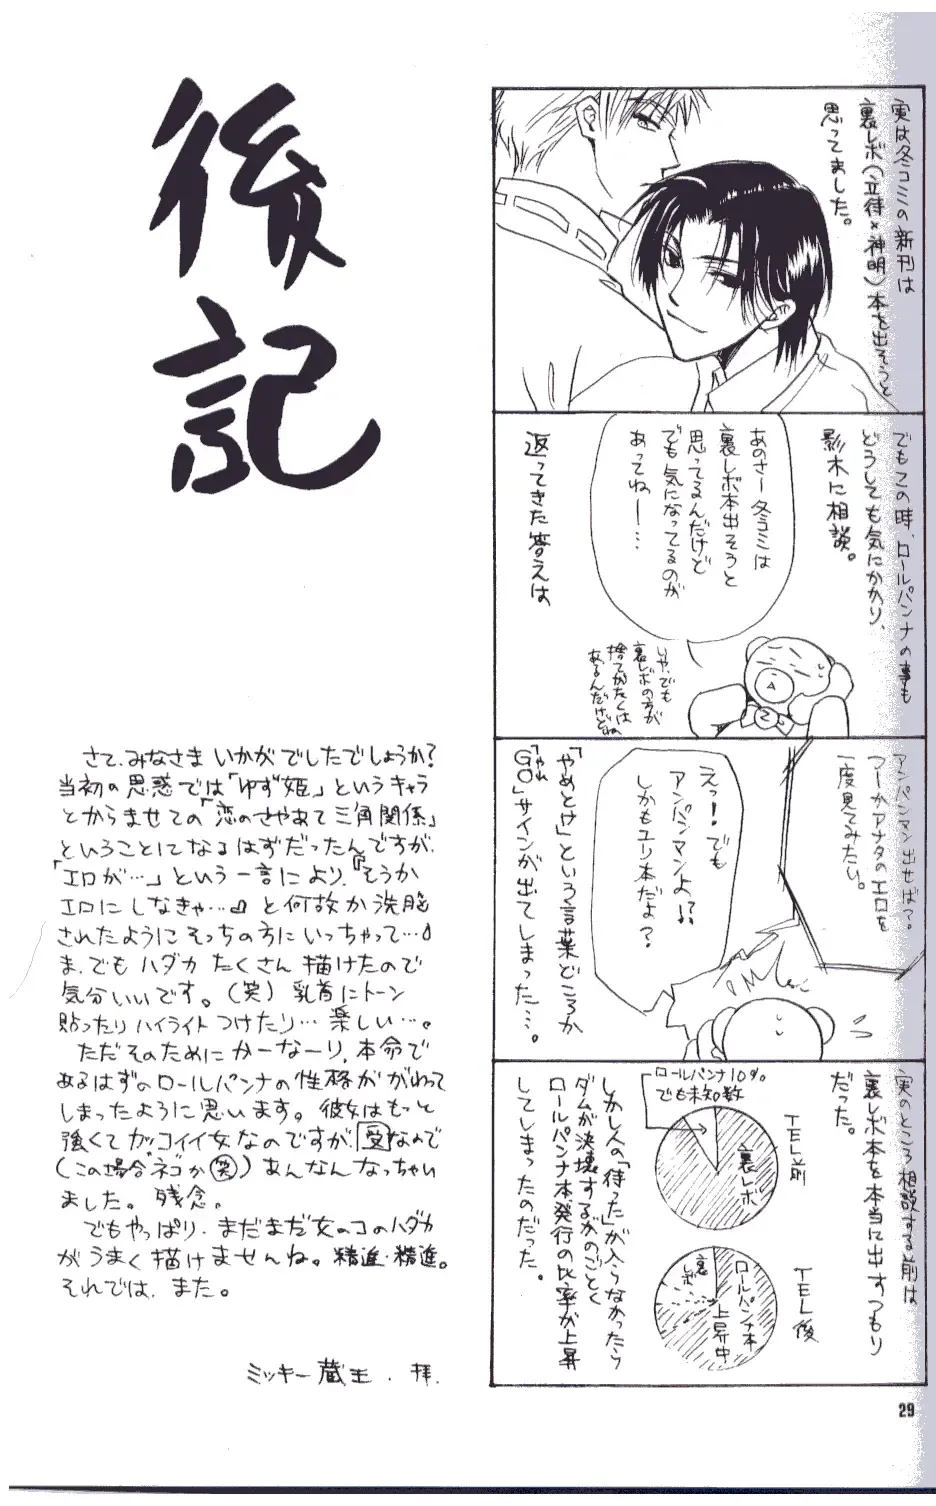 後記
実は冬コミの新刊は
裏レボ(立待×神明)本を出そうと
思ってました。
でもこの時、ロールパンナの事も
どうしても気にかかり、
影木に相談。
あのさー冬コミは
裏レボ本出そうと
思ってるんだけど
でも気になってるのが
あってねー…
返ってきた答えは
いや、でも
裏レボの方が
捨てがたくは
あるんだけどね
アンパンマン出せば?
つーかアナタのエロを
一度見てみたい。
えっ!でも
アンパンマンよ!?
しかもユリ本だよ?
「やめとけ」という言葉どころか
「やれ」
GO サインが出てしまった…。
実のところ相談する前は
裏レボ本を本当に出すつもり
だった。
TEL前
ロールパンナ10%
でも未知数
裏レボ
TEL後
ロールパンナ本
上昇中
裏レボ
しかし人の「待った」が入らなかったら
ダムが決壊するがのごとく
ロールパンナ本発行の比率が上昇
してしまったのだった。
さて、みなさま いかがでしたでしょうか?
当初の思惑では「ゆず姫」というキャラ
とからませての「恋のさやあて三角関係」
ということになるはずだったんですが、
「エロが…」という一言により、「そうか
エロにしなきゃ…」と何故か洗脳
されたようにそっちの方にいっちゃって…
ま、でもハダカ たくさん 描けたので
気分いいです。(笑) 乳首にトーン
貼ったりハイライトつけたり…楽しい…。
ただそのために かーなーり、本命で
あるはずのロールパンナの性格が がわって
しまったように思います。彼女はもっと
強くてカッコイイ女なのですが、受なので
(この場合ネコか 笑)あんなんなっちゃい
ました。残念。
でもやっぱり、まだまだ女のコのハダカ
がうまく描けませんね。精進・精進。
それでは、また。
ミッキー蔵王.拝.
29